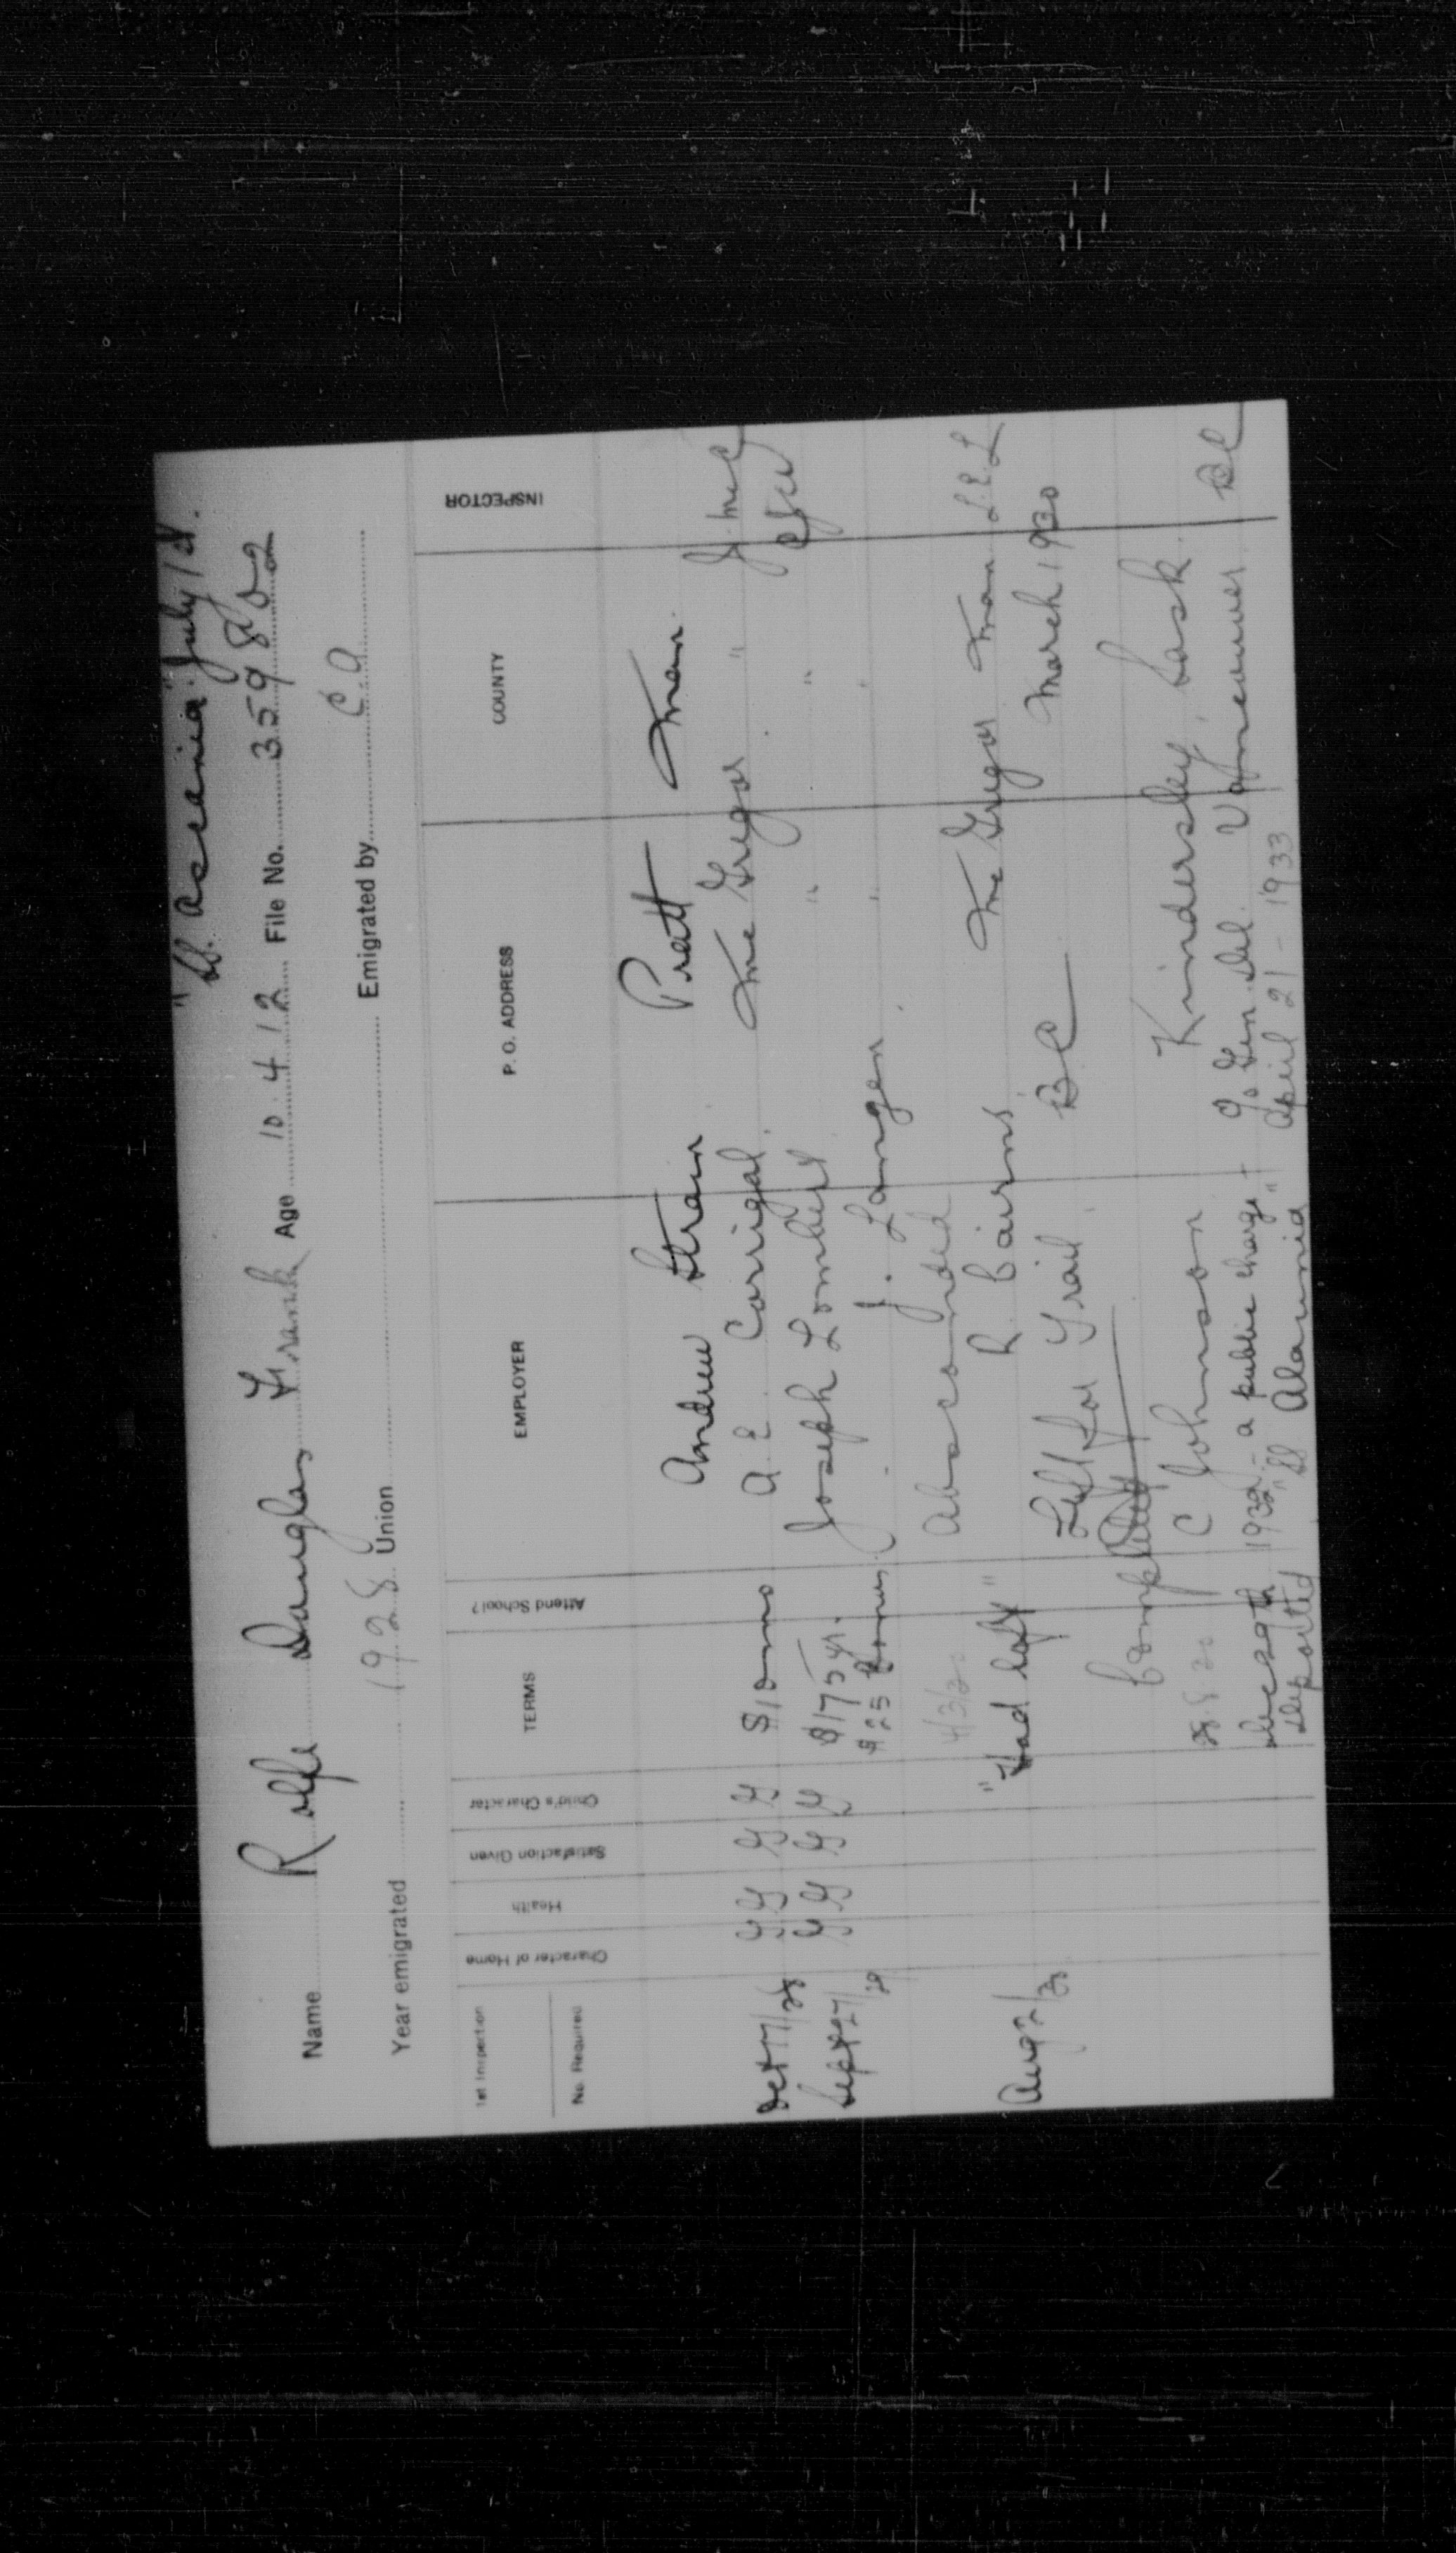 "SS. Ascania" July 1st.
Name Rolfe Douglas Frank Age 10.4.12 File No. 359802
Year emigrated 1928 Union Emigrated by C.A
1st Inspection
No. Required
Character of Home
Health
Satisfaction Given
Child's Character
TERMS
Attend School?
EMPLOYER
P. O. ADDRESS
COUNTY
INSPECTOR
Andrew Strain Pratt Man.
Oct 17/28 G G G G $10 mo A. E. Corrigal. McGregor "
Sept 27/29 G G G G $175 yr. Joseph Lombert " "
$25 Bonus. J. Langen " "
4/3/30 Absconded
Aug 2/30 "Had left" R Cairns McGregor Man
Left for Trail BC March 1930
Completed
C Johnson Kindersley, Sask.
Dec 29th 1932 - a public charge - % Gen. Del. Vancouver BC
Deported "SS Alaunia" April 21 - 1933